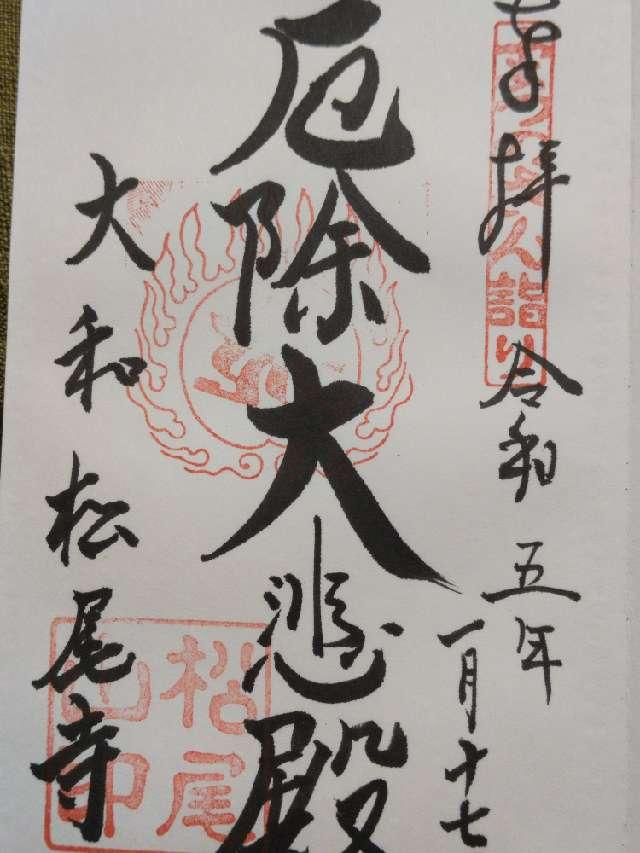 奉拝
令和五年
一月十七
厄除大悲殿
大和松尾寺
松尾山印